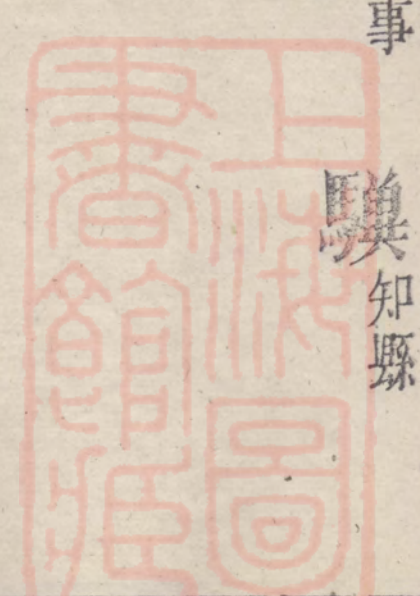 事
知縣
上海圖書館藏